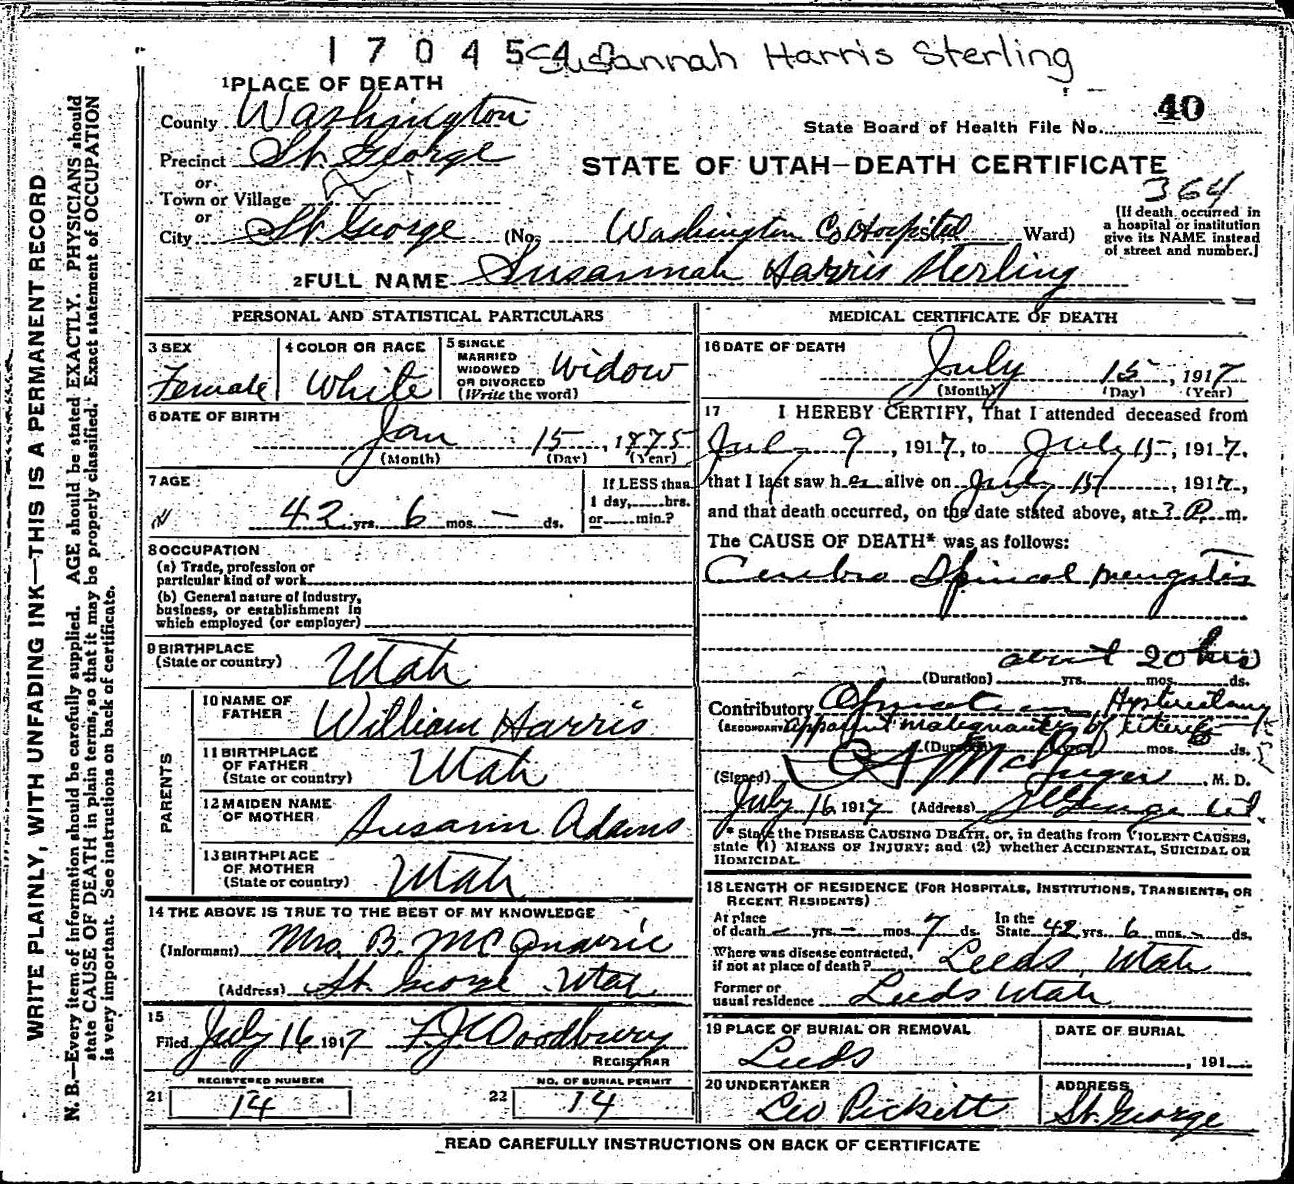 1 7 0 4 5 4 0 Susannah Harris Sterling
1 PLACE OF DEATH
County Washington
State Board of Health File No. 40
Precinct St. George
STATE OF UTAH—DEATH CERTIFICATE
364
or
Town or Village
or
City St. George (No. Washington Co Hospital Ward)
(If death occurred in
a hospital or institution
give its NAME instead
of street and number.)
2 FULL NAME Susannah Harris Sterling
WRITE PLAINLY, WITH UNFADING INK—THIS IS A PERMANENT RECORD
N. B.—Every item of information should be carefully supplied. AGE should be stated EXACTLY. PHYSICIANS should
state CAUSE OF DEATH in plain terms, so that it may be properly classified. Exact statement of OCCUPATION
is very important. See instructions on back of certificate.
PERSONAL AND STATISTICAL PARTICULARS
3 SEX
Female
4 COLOR OR RACE
White
5 SINGLE
MARRIED
WIDOWED
OR DIVORCED
(Write the word)
Widow
6 DATE OF BIRTH
Jan 15, 1875
(Month) (Day) (Year)
7 AGE
42 yrs. 6 mos. — ds.
If LESS than
1 day, hrs.
or min.?
8 OCCUPATION
(a) Trade, profession or
particular kind of work
(b) General nature of Industry,
business, or establishment in
which employed (or employer)
9 BIRTHPLACE
(State or country) Utah
PARENTS
10 NAME OF
FATHER William Harris
11 BIRTHPLACE
OF FATHER
(State or country) Utah
12 MAIDEN NAME
OF MOTHER Susann Adams
13 BIRTHPLACE
OF MOTHER
(State or country) Utah
14 THE ABOVE IS TRUE TO THE BEST OF MY KNOWLEDGE
(Informant) Mrs. B. McQuarrie
(Address) St. George Utah
15
Filed July 16 1917 F. J. Woodbury
REGISTRAR
REGISTERED NUMBER
21 14
NO. OF BURIAL PERMIT
22 14
MEDICAL CERTIFICATE OF DEATH
16 DATE OF DEATH
July 15, 1917
(Month) (Day) (Year)
17 I HEREBY CERTIFY, That I attended deceased from
July 9, 1917, to July 15, 1917.
that I last saw her alive on July 15, 1917,
and that death occurred, on the date stated above, at 3 P. m.
The CAUSE OF DEATH* was as follows:
Cerebro Spinal mengitis
about 20 hrs
(Duration) yrs. mos. ds.
Contributory Operation Hysterectomy
(SECONDARY) apparent malignancy of uterus
(Duration) yrs. mos. ds.
(Signed) M. D.
July 16 1917 (Address) St George Ut.
* State the DISEASE CAUSING DEATH, or, in deaths from VIOLENT CAUSES,
state (1) MEANS OF INJURY; and (2) whether ACCIDENTAL, SUICIDAL OR
HOMICIDAL.
18 LENGTH OF RESIDENCE (FOR HOSPITALS, INSTITUTIONS, TRANSIENTS, OR
RECENT RESIDENTS)
At place
of death — yrs. — mos. 7 ds.
In the
State 42 yrs. 6 mos. — ds.
Where was disease contracted,
if not at place of death? Leeds, Utah
Former or
usual residence Leeds Utah
19 PLACE OF BURIAL OR REMOVAL
Leeds
DATE OF BURIAL
, 191
20 UNDERTAKER
Leo Pickett
ADDRESS
St. George
READ CAREFULLY INSTRUCTIONS ON BACK OF CERTIFICATE